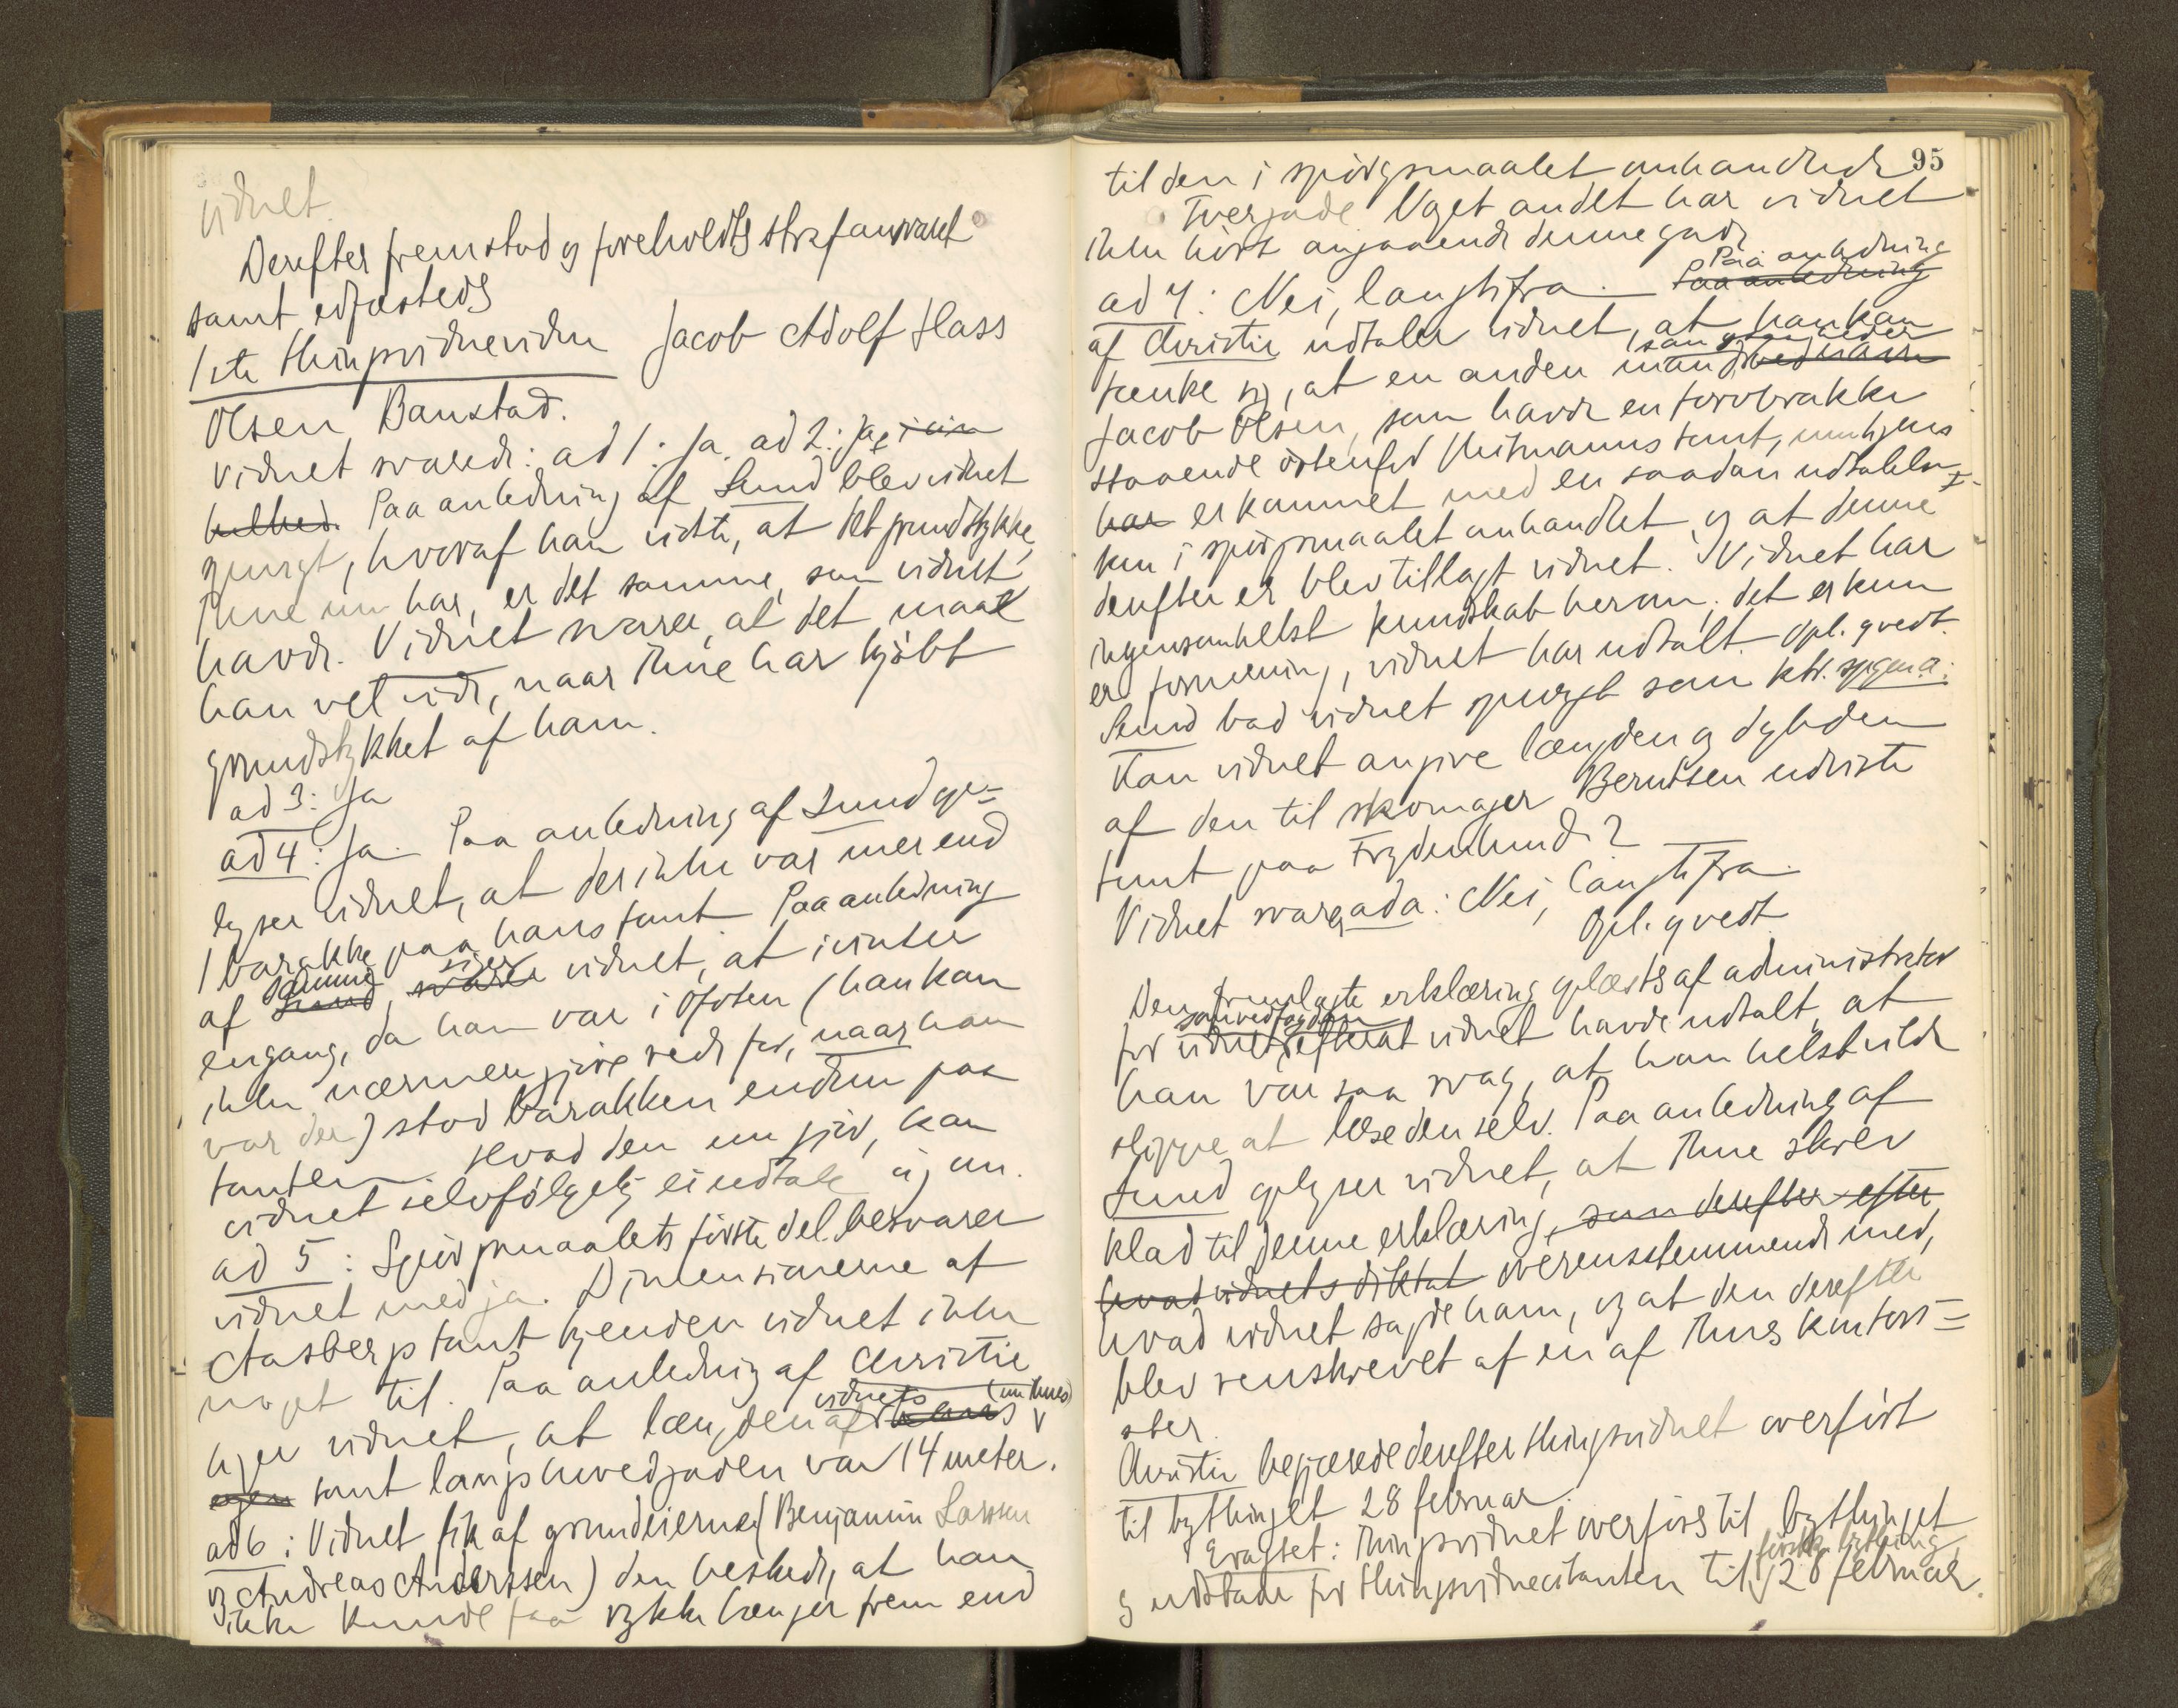 vidnet.
Derefter fremstod og foreholdts strafansvaret
samt edfæsteds
1ste thingsvidnevidne Jacob Adolf Hass
Olsen Banstad.
Vidnet svarede: ad 1: Ja. ad 2: Ja, i sin
helhed. Paa anledning af Lund blev vidnet
spurgt, hvoraf han vidste, at det grundstykke,
Thue nu har, er det samme, som vidnet
havde. Vidnet svarer, at det maatte
han vel vide, naar Thue har kjøbt
grundstykket af ham.
ad 3: Ja
ad 4: Ja. Paa anledning af Lund op=
lyser vidnet, at der ikke var mer end
1 barakke paa hans tomt. Paa anledning
af Lund samme, svarer siger vidnet, at ivinter
engang, da han var i Ofoten (han kan
ikke nærmere gjøre rede for, naar han
var der) stod barakken endnu paa
tomten. Hvad den nu gjør, kan
vidnet selvfølgelig ei udtale sig om.
ad 5: Spørgsmaalets første del besvarer
vidnet med ja. Dimensionerne af
Aasbergs tomt kjender vidnet ikke
noget til. Paa anledning af Christie
siger vidnet, at længden af hans vidnets (nu Thues)
egen tomt langs hovedgaden var 14 meter.
ad 6: Vidnet fik af grundeierne (Benjamin Larssen
og Andreas Anderssen) den besked, at han
ikke kunde faa rykke længer frem end
95
til den i spørgsmaalet omhandlede
Tvergade. Noget andet har vidnet
ikke hørt angaaende denne gade.
ad 7: Nei, langtifra. Paa anledning Paa anledning
af Christie udtaler vidnet, at han kan
tænke sig, at en anden mand, ved navn
Jacob Olsen, som havde en torvbrakke
staaende østenfor Heitmanns tomt,
har er kommet med en saadan udtalelse
som i spørgsmaalet omhandlet, og at denne
derefter er blev tillagt vidnet. Vidnet har
ingensomhelst kundskab herom; det er kun
en formening, vidnet har udtalt. Opl. & vedt.
Lund bad vidnet spurgt som ktr. spgm. a:
Kan vidnet angive længden og dybden
af den til skomager Berntsen udviste
tomt paa Frydenlund?
Vidnet svarer, ad a: Nei, langtifra.
Opl. & vedt.
Den fremlagte erklæring oplæstes af administrator
for vidnet, efterat vidnet havde udtalt, at
han var saa svag, at han helst vilde
slippe at læse den selv. Paa anledning af
Lund oplyser vidnet, at Thue skrev
klad til denne erklæring, som derefter efter
hvad vidnets diktat overensstemmende med,
hvad vidnet sagde ham, og at den derefter
blev renskrevet af en af Thues kontori=
ster.
Christie begjærede derefter thingsvidnet overført
til bythinget 28 februar.
Eragtet: Thingsvidnet overføres til bythinget
og udstaar for thingsvidnecitanten til førstk. bything, 28 februar.